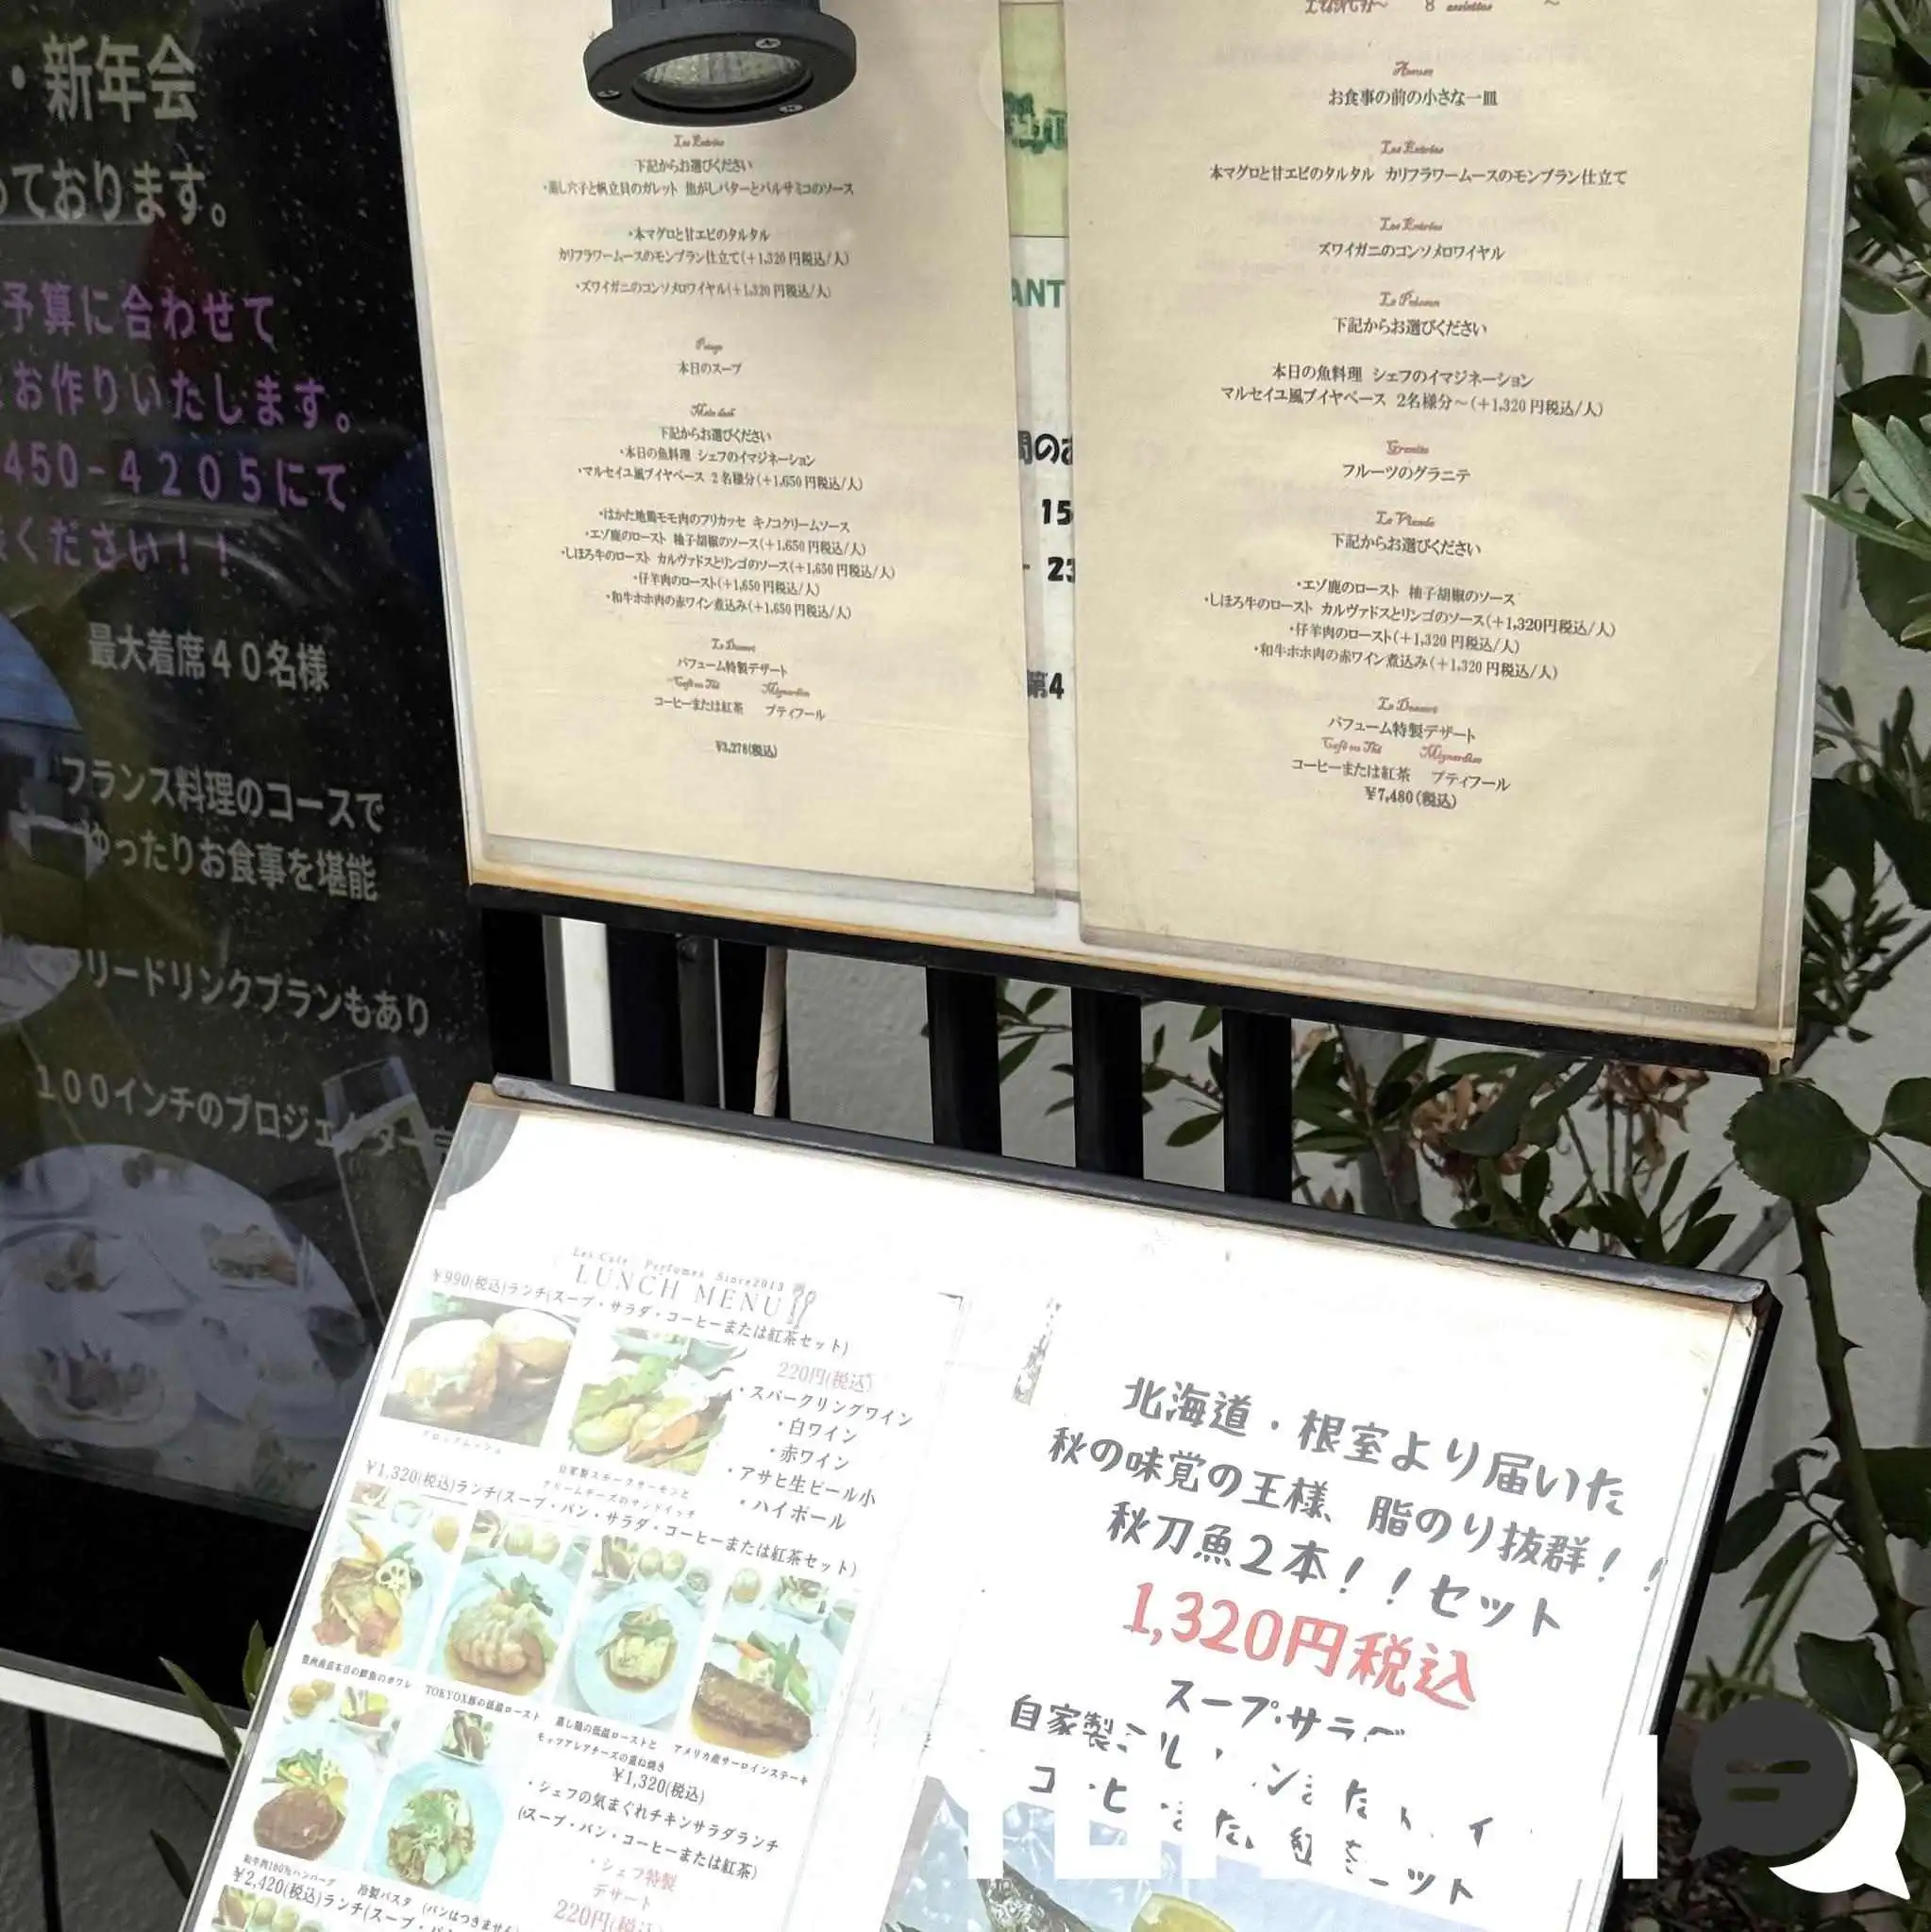 ・新年会
っております。
予算に合わせて
お作りいたします。
450-4205にて
ください！！
最大着席40名様
フランス料理のコースで
ゆったりお食事を堪能
リードリンクプランもあり
100インチのプロジェクター
Les Entrées
下記からお選びください
・蒸し穴子と帆立貝のガレット 焦がしバターとバルサミコのソース
・本マグロと甘エビのタルタル
カリフラワームースのモンブラン仕立て(＋1,320円税込/人)
・ズワイガニのコンソメロワイヤル(＋1,320円税込/人)
Potage
本日のスープ
Main dish
下記からお選びください
・本日の魚料理 シェフのイマジネーション
・マルセイユ風ブイヤベース 2名様分(＋1,650円税込/人)
・はかた地鶏モモ肉のフリカッセ キノコクリームソース
・エゾ鹿のロースト 柚子胡椒のソース(＋1,650円税込/人)
・しほろ牛のロースト カルヴァドスとリンゴのソース(＋1,650円税込/人)
・仔羊肉のロースト(＋1,650円税込/人)
・和牛ホホ肉の赤ワイン煮込み(＋1,650円税込/人)
Le Dessert
パフューム特製デザート
Café ou Thé Mignardise
コーヒーまたは紅茶 プティフール
¥3,278(税込)
ANT
間のお
15
23
第4
8 assiettes ～
Amuse
お食事の前の小さな一皿
Les Entrées
本マグロと甘エビのタルタル カリフラワームースのモンブラン仕立て
Les Entrées
ズワイガニのコンソメロワイヤル
Le Poisson
下記からお選びください
本日の魚料理 シェフのイマジネーション
マルセイユ風ブイヤベース 2名様分～(＋1,320円税込/人)
Granite
フルーツのグラニテ
La Viande
下記からお選びください
・エゾ鹿のロースト 柚子胡椒のソース
・しほろ牛のロースト カルヴァドスとリンゴのソース(＋1,320円税込/人)
・仔羊肉のロースト(＋1,320円税込/人)
・和牛ホホ肉の赤ワイン煮込み(＋1,320円税込/人)
Le Dessert
パフューム特製デザート
Café ou Thé Mignardise
コーヒーまたは紅茶 プティフール
¥7,480(税込)
Les Cafe Perfumes Since2013
LUNCH MENU
¥990(税込)ランチ(スープ・サラダ・コーヒーまたは紅茶セット)
220円(税込)
・スパークリングワイン
・白ワイン
・赤ワイン
・アサヒ生ビール小
・ハイボール
クロックムッシュ
自家製スモークサーモンと
クリームチーズのサンドイッチ
¥1,320(税込)ランチ(スープ・パン・サラダ・コーヒーまたは紅茶セット)
豊洲直送本日の鮮魚のポワレ
TOKYOX豚の低温ロースト
蒸し鶏の低温ローストと
モッツアレラチーズの重ね焼き
アメリカ産サーロインステーキ
¥1,320(税込)
・シェフの気まぐれチキンサラダランチ
(スープ・パン・コーヒーまたは紅茶)
・シェフ特製
デザート
220円(税込)
和牛肉100%ハンバーグ
冷製パスタ (パンはつきません)
¥2,420(税込)ランチ(スープ・パ
北海道・根室より届いた
秋の味覚の王様、脂のり抜群！！
秋刀魚2本！！セット
1,320円税込
スープ・サラダ
自家製